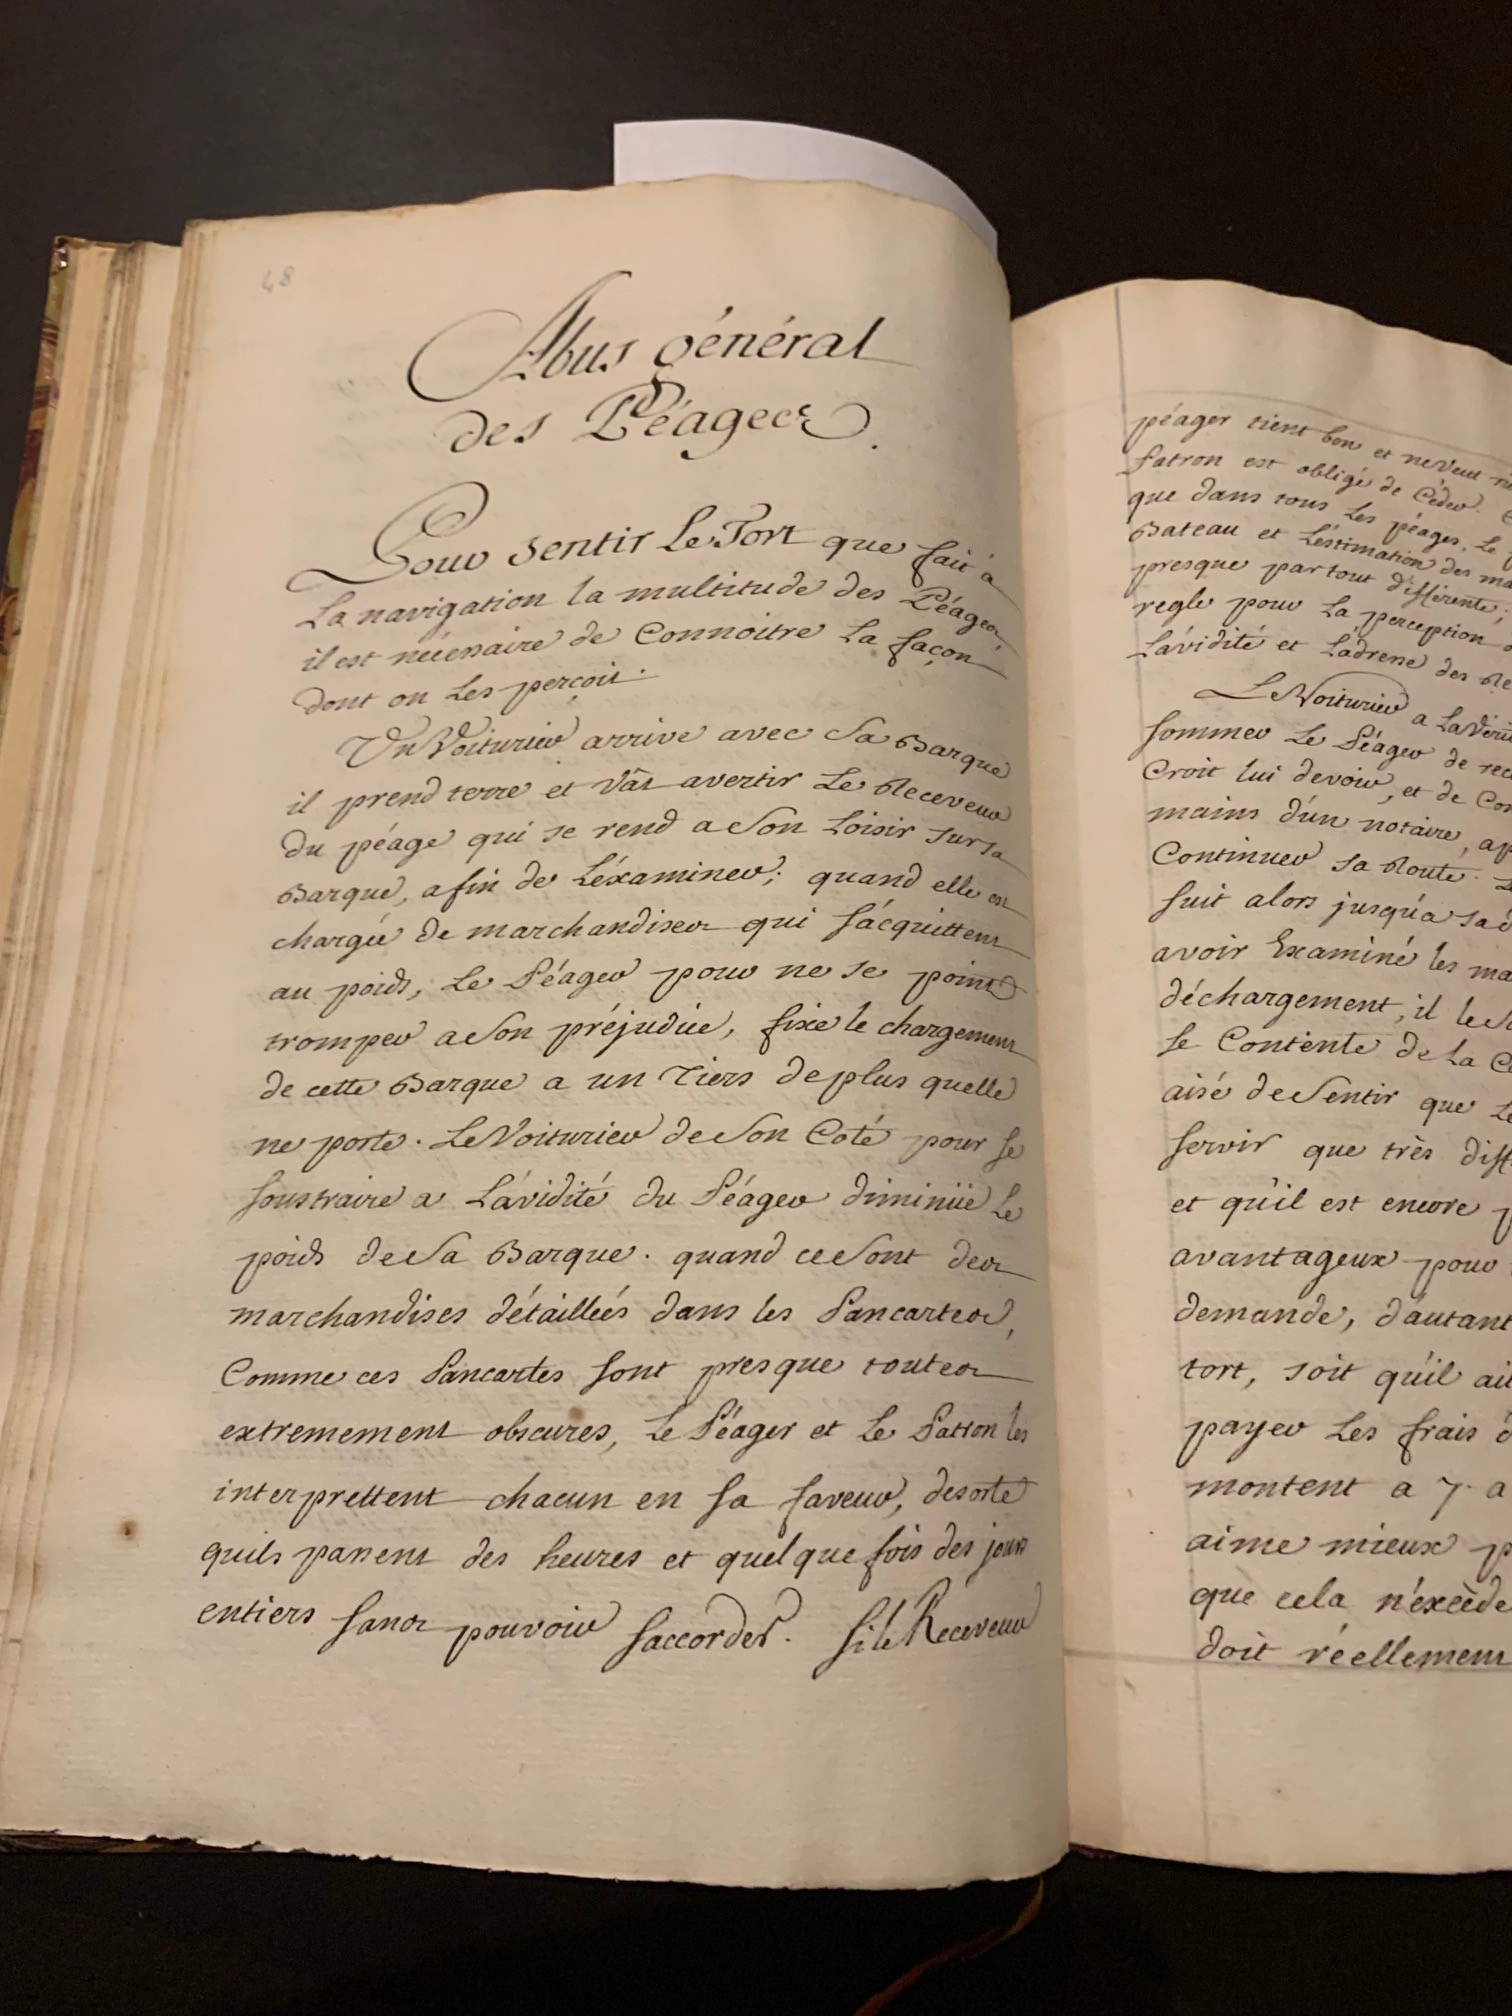 48
Abus général
des Péages.
Pour sentir Le Tort que fait à
La navigation la multitude des Péages,
il est nécessaire de Connoitre La façon
dont on Les perçoit.
Un Voiturier arrive avec Sa Barque
il prend terre et vât avertir Le Receveur
du péage qui se rend a Son Loisir sur sa
Barque, afin de L'éxaminer; quand elle est
chargée de marchandises qui s'acquittent
au poids, Le Péager pour ne se point
tromper a Son préjudice, fixe le chargement
de cette Barque a un Tiers de plus quelle
ne porte. Le Voiturier de Son Coté pour se
soustraire a L'avidité du Péager diminüe Le
poids de Sa Barque. quand ce Sont des
marchandises détaillées dans les Pancartes,
Comme ces Pancartes sont presque toutes
extremement obscures, Le Péager et Le Patron les
interprettent chacun en sa faveur, desorte
quils passent des heures et quelque fois des jours
entiers sans pouvoir saccorder. si le Receveur
péager tient bon et ne Veut
Patron est obligé de Céder.
que dans tous Les péages, Le
Bateau et L'éstimation des
presque partout différente,
regle pour La perception
L'avidité et L'adresse des
Le Voiturier a La
sommer Le Péager de
Croit lui devoir, et de
mains d'un notaire,
Continuer sa Route.
suit alors jusqu'a sa
avoir Examiné les
déchargement, il le
se Contente de La
aisé de Sentir que Le
servir que très
et qu'il est encore
avantageux pour
demande, d'autant
tort, soit qu'il ait
payer Les frais
montent a 7. a
aime mieux
que cela n'éxcède
doit réellement